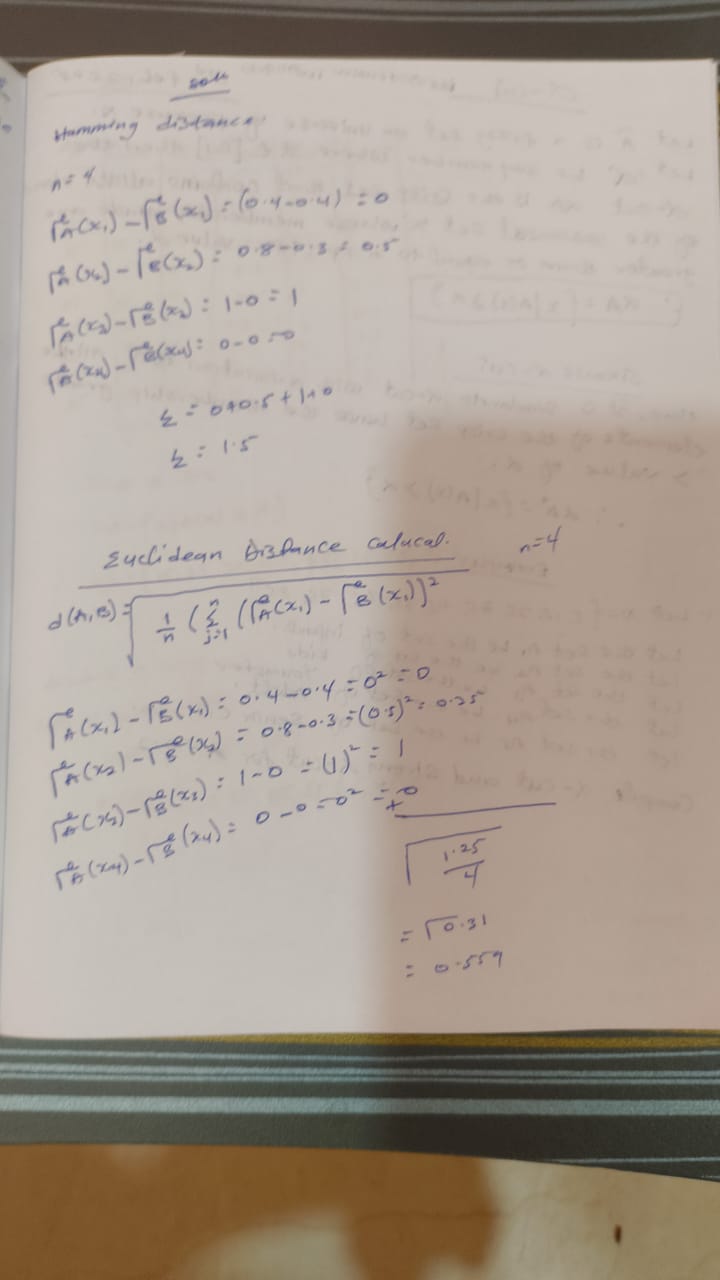 soln
Hamming distance.
n=4
Γ̃A(x₁) - Γ̃B(x₁) = (0.4-0.4) = 0
Γ̃A(x₂) - Γ̃B(x₂) = 0.8-0.3 = 0.5
Γ̃A(x₃) - Γ̃B(x₃) = 1-0 = 1
Γ̃A(x₄) - Γ̃B(x₄) = 0-0=0
Σ = 0+0.5+1+0
Σ = 1.5
Euclidean Distance Calucal. n=4
d(A,B) = √(1/n (Σⁿj=1 (Γ̃A(x₁) - Γ̃B(x₁))²
Γ̃A(x₁) - Γ̃B(x₁) = 0.4-0.4 = 0² = 0
Γ̃A(x₂) - Γ̃B(x₂) = 0.8-0.3 = (0.5)² = 0.25
Γ̃A(x₃) - Γ̃B(x₃) = 1-0 = (1)² = 1
Γ̃A(x₄) - Γ̃B(x₄) = 0-0=0² = +0
√(1.25/4)
= √0.31
= 0.559